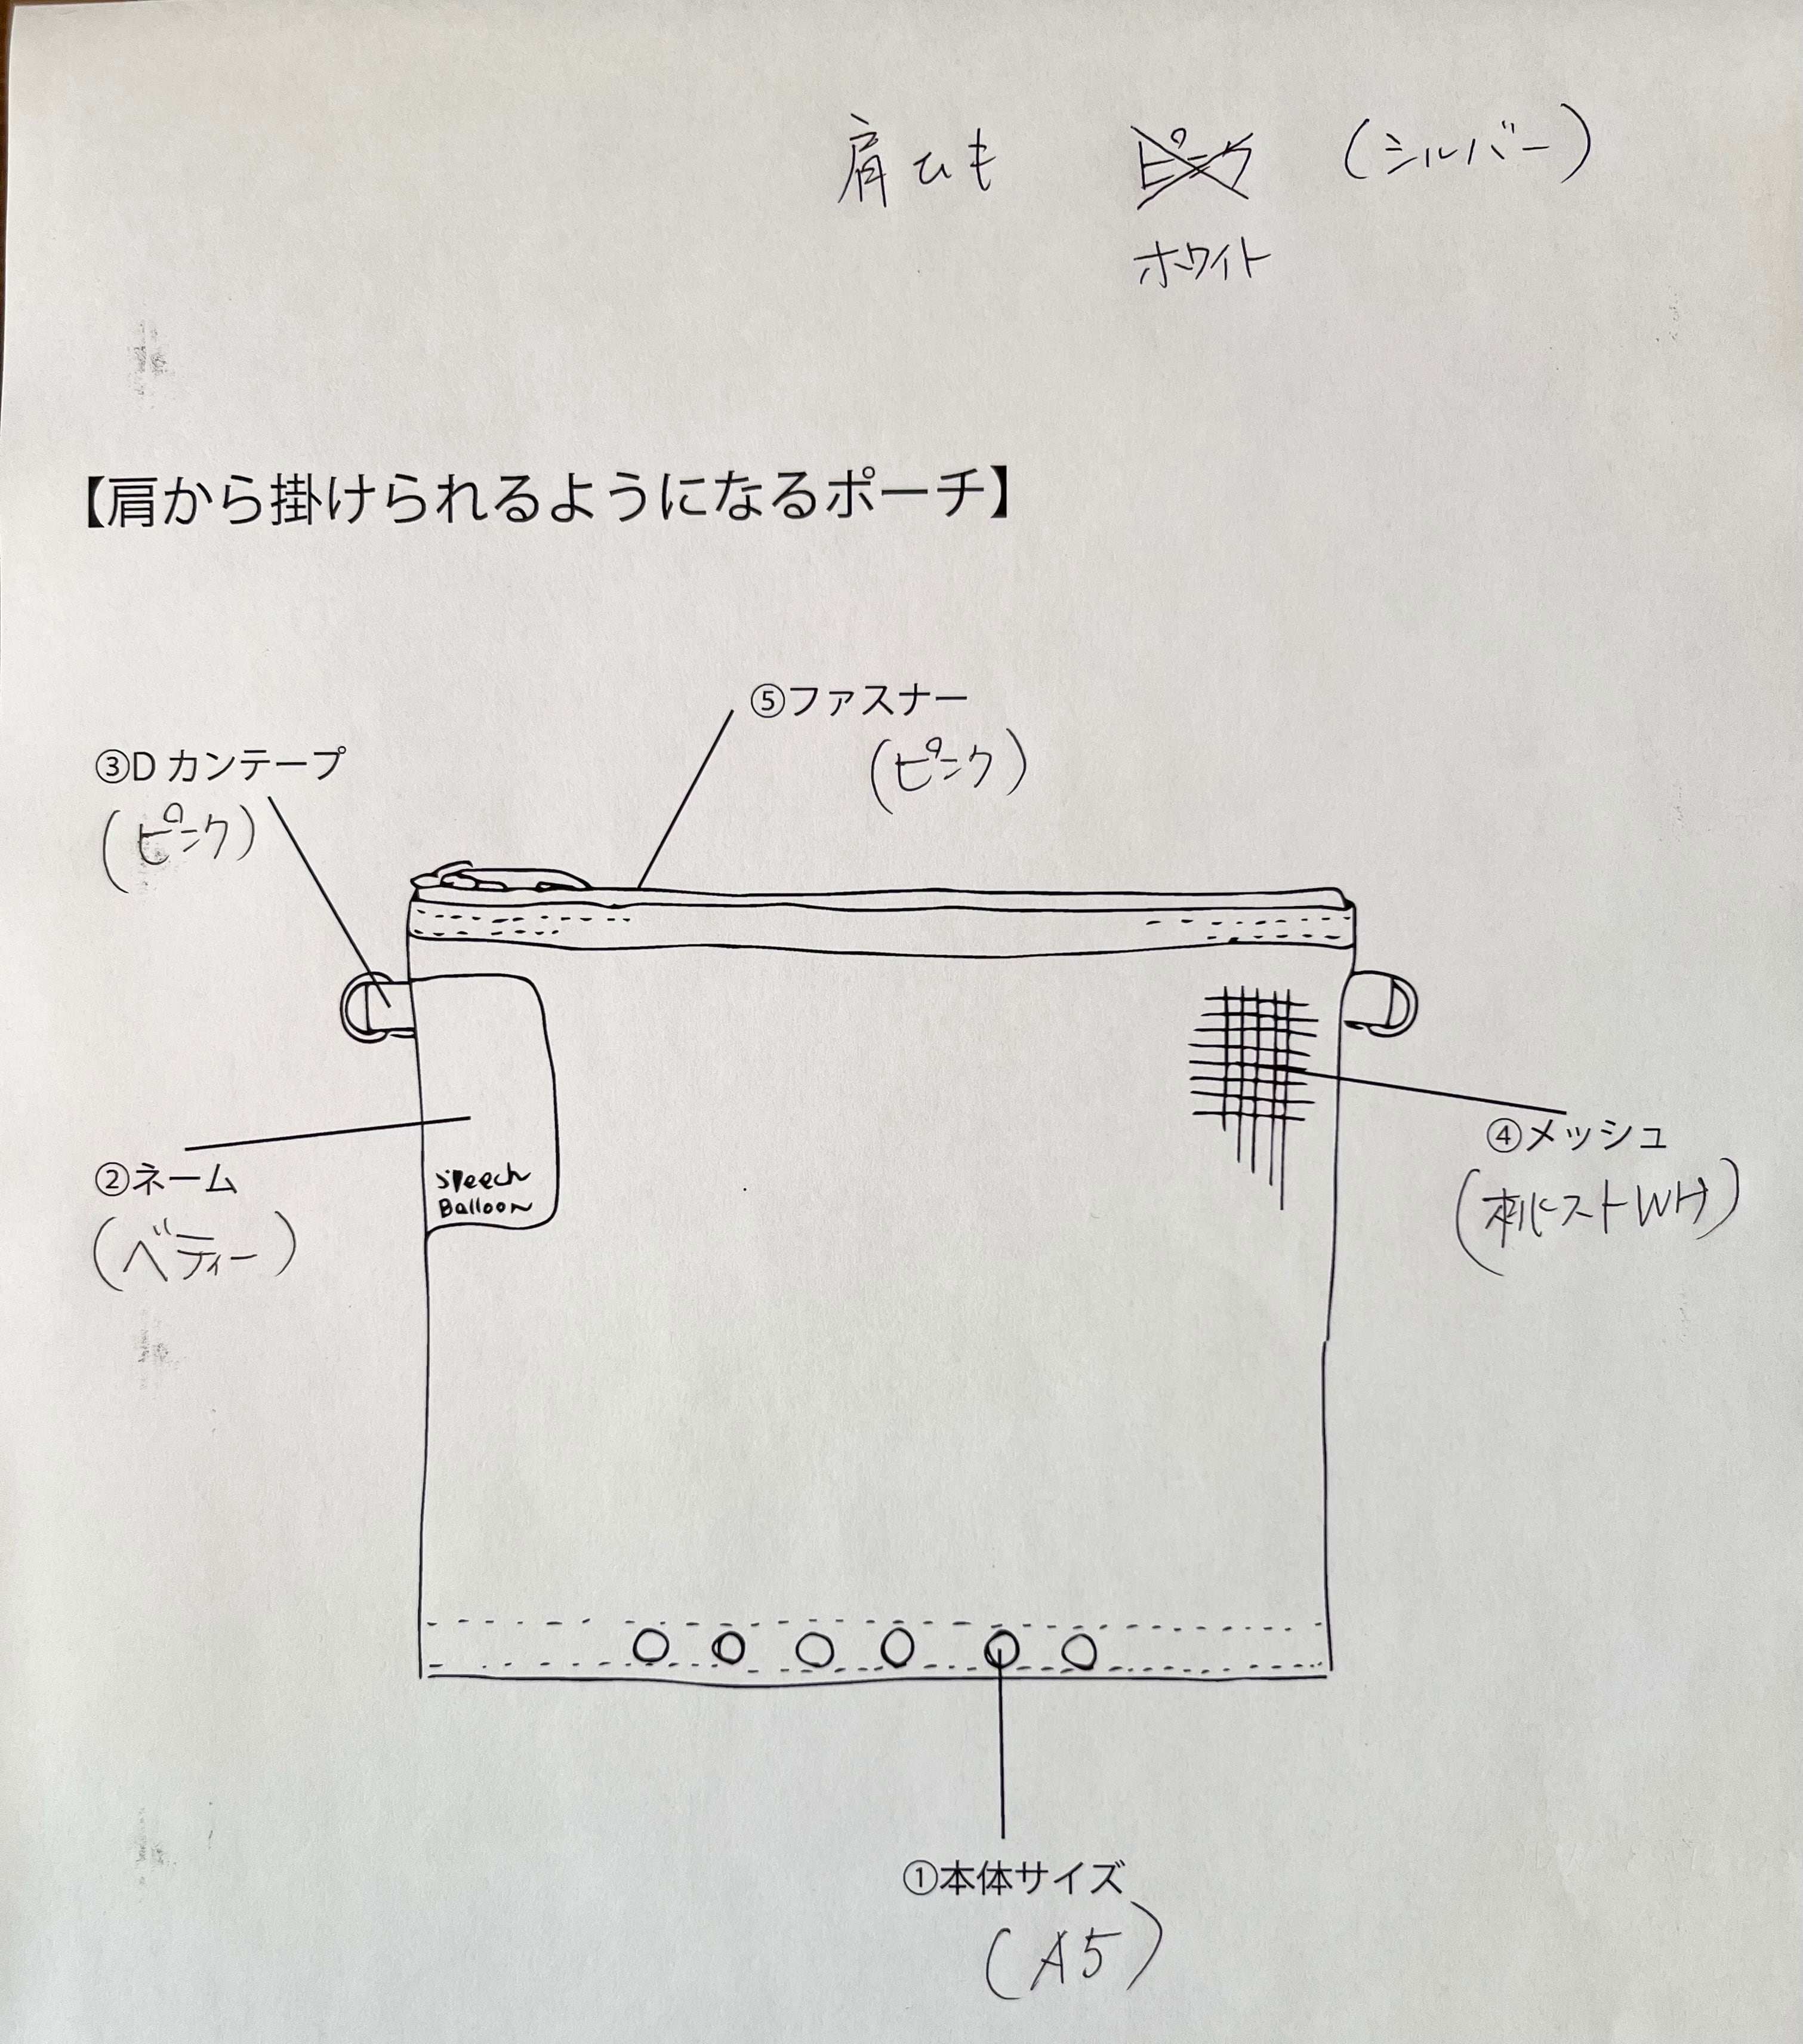 肩ひも ピンク (シルバー)
ホワイト
【肩から掛けられるようになるポーチ】
⑤ファスナー
(ピンク)
③Dカンテープ
(ピンク)
④メッシュ
WH)
②ネーム
(ベティー)
speech
Balloon
①本体サイズ
(A5)